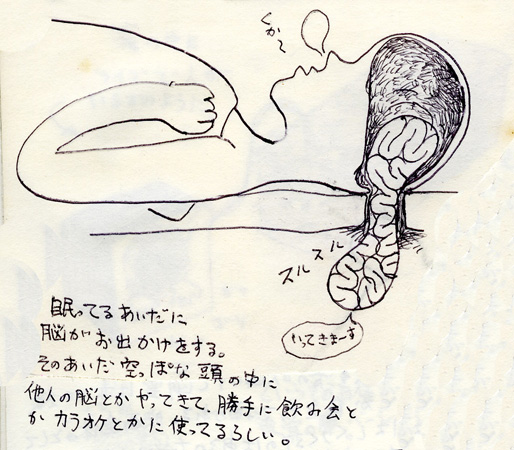 くかー
スルスル
いってきまーす
眠ってるあいだに
脳がお出かけをする。
そのあいだ空っぽな頭の中に
他人の脳とかやってきて、勝手に飲み会と
かカラオケとかに使ってるらしい。